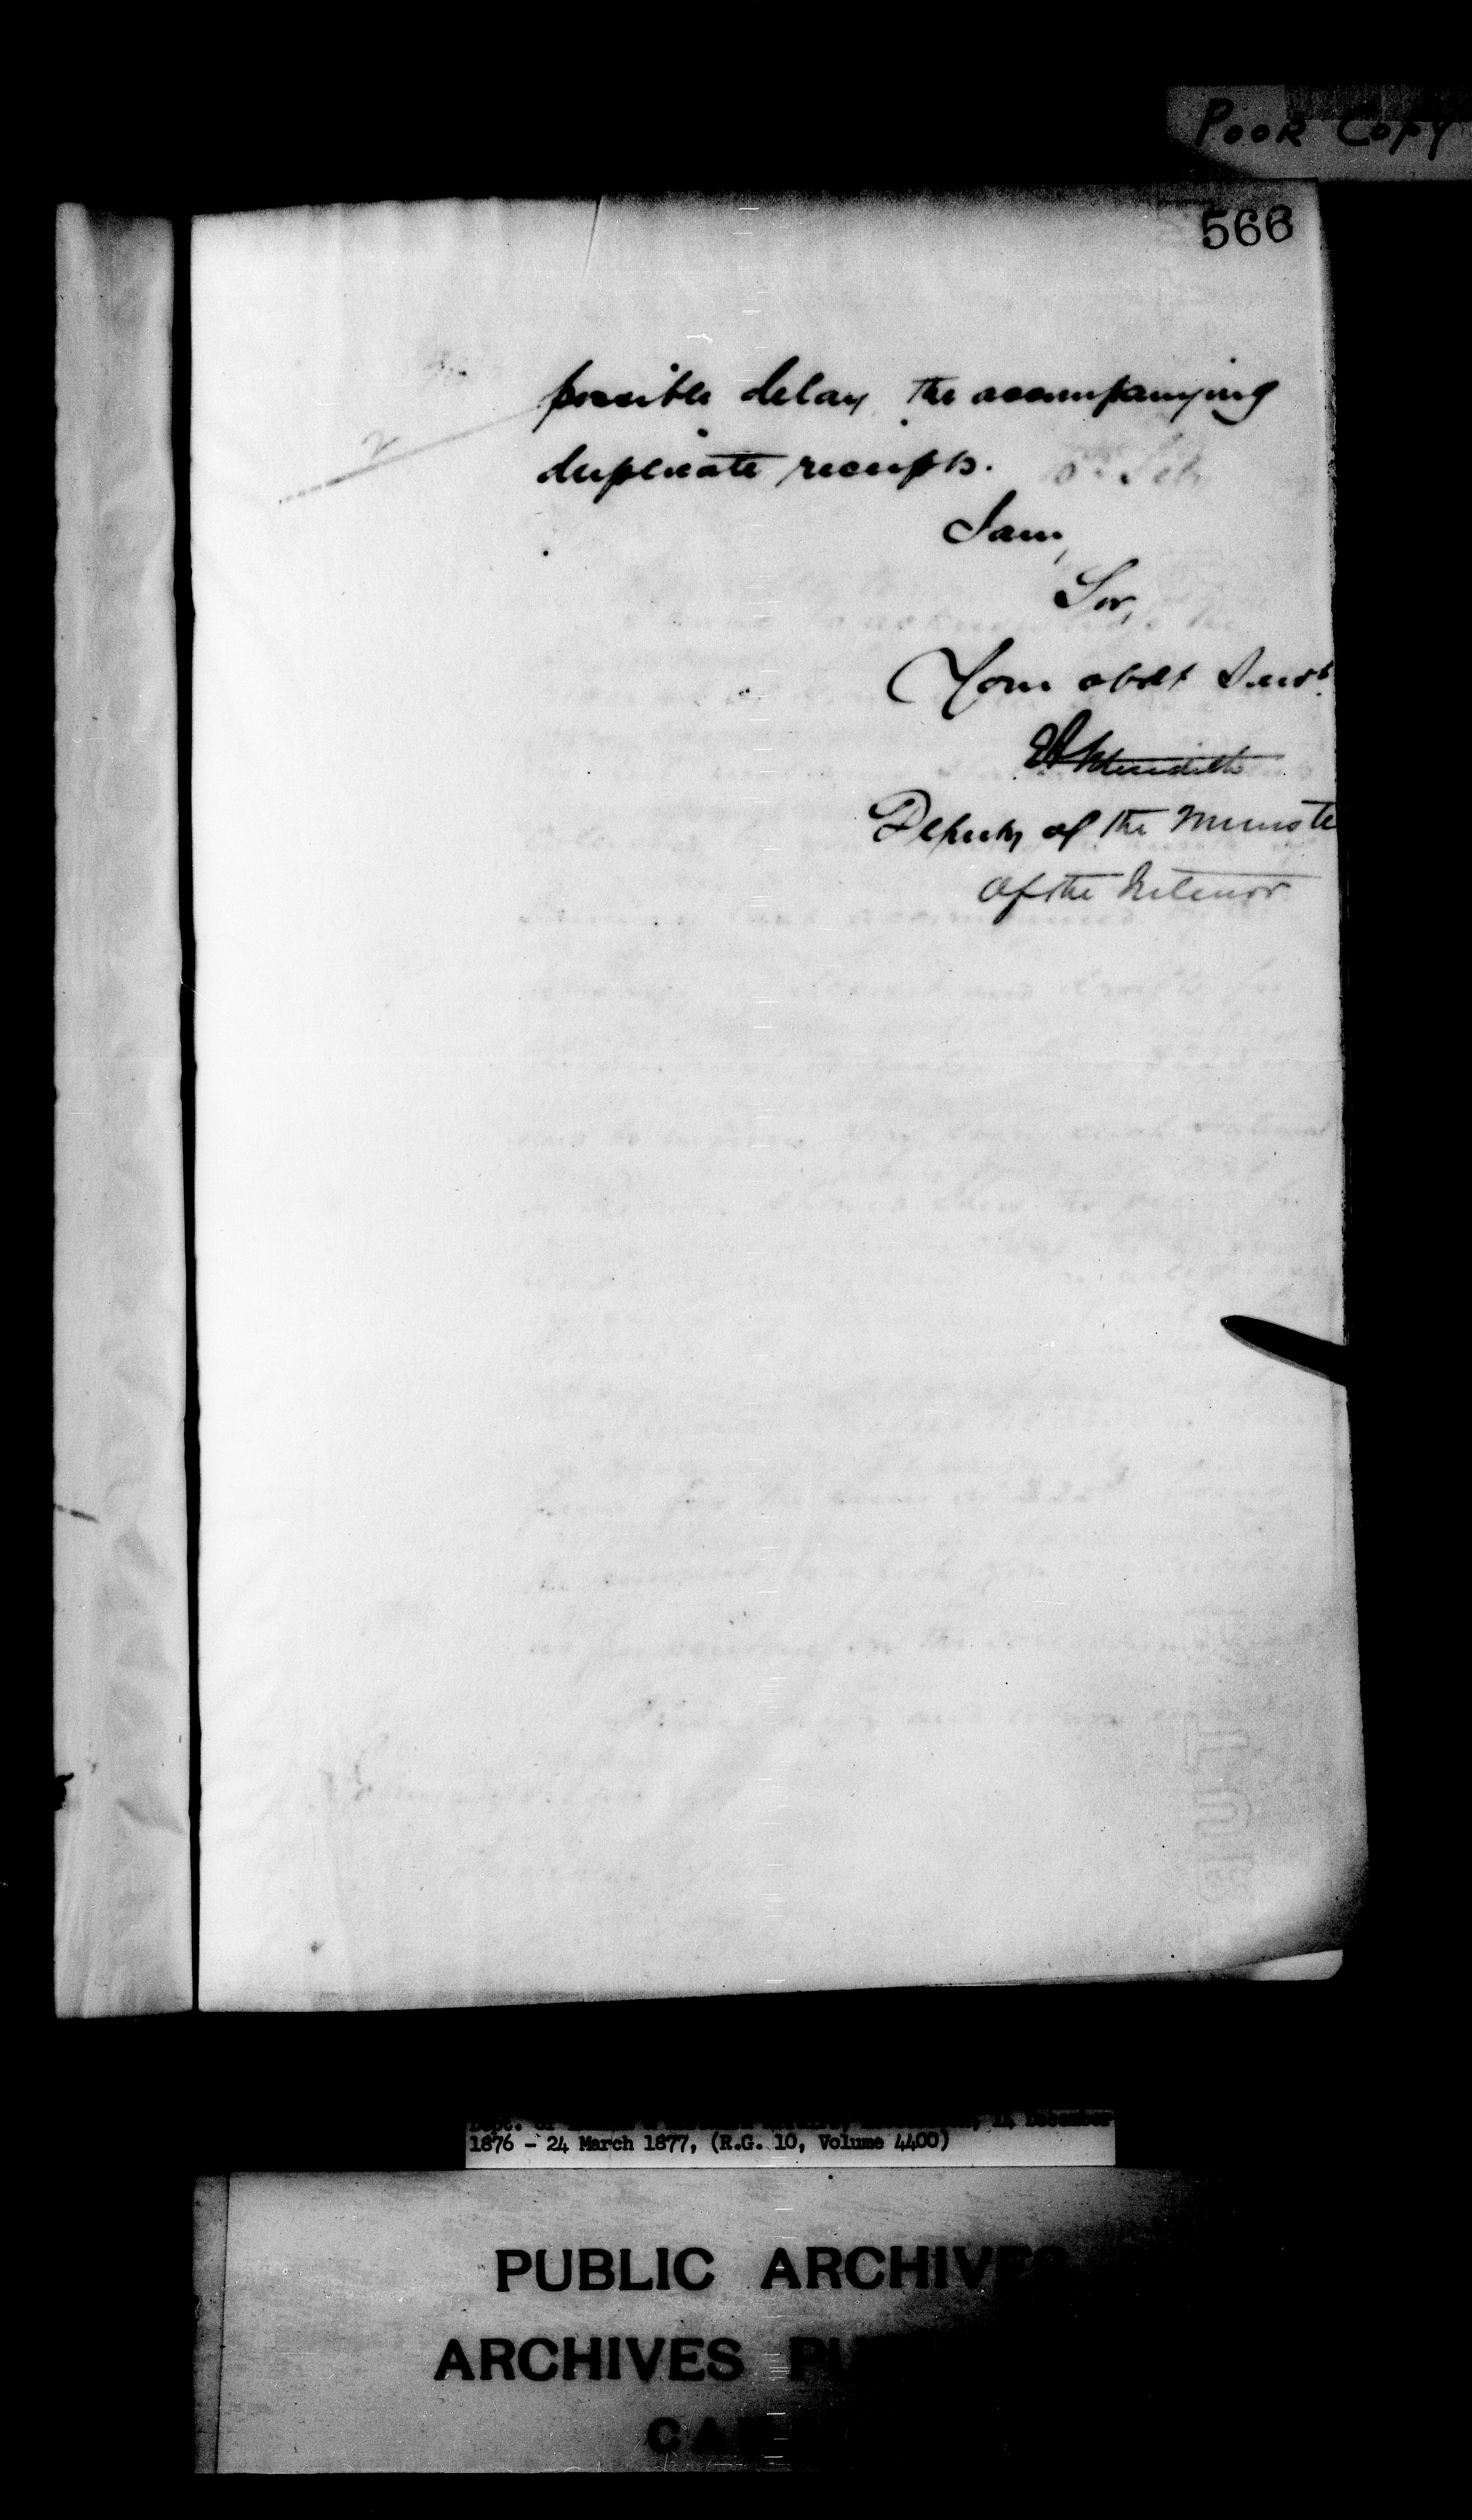 POOR COPY
566
2
possible delay the accompanying
duplicate receipts.
I am,
Sir,
Your obdt Servt.
E A Meredith
Deputy of the Ministe
of the Interior
December
1876 - 24 March 1877, (R.G. 10, Volume 4400)
PUBLIC ARCHIVES
ARCHIVES PU
CA